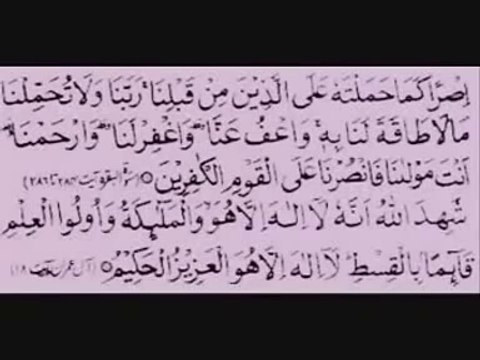 اِصْرًا كَمَا حَمَلْتَهٗ عَلَى الَّذِيْنَ مِنْ قَبْلِنَا ۚ رَبَّنَا وَلَا تُحَمِّلْنَا
مَا لَا طَاقَةَ لَنَا بِهٖ ۚ وَاعْفُ عَنَّا ۥ وَاغْفِرْ لَنَا ۥ وَارْحَمْنَا ۥ
اَنْتَ مَوْلٰىنَا فَانْصُرْنَا عَلَى الْقَوْمِ الْكٰفِرِيْنَ ۝ (سورۃ البقرۃ آیت ۲۸۴ تا ۲۸۶)
شَهِدَ اللّٰهُ اَنَّهٗ لَآ اِلٰهَ اِلَّا هُوَ ۙ وَالْمَلٰٓئِكَةُ وَاُولُوا الْعِلْمِ
قَآئِمًۢا بِالْقِسْطِ ۭ لَآ اِلٰهَ اِلَّا هُوَ الْعَزِيْزُ الْحَكِيْمُ ۝ (آل عمران آیت ۱۸)